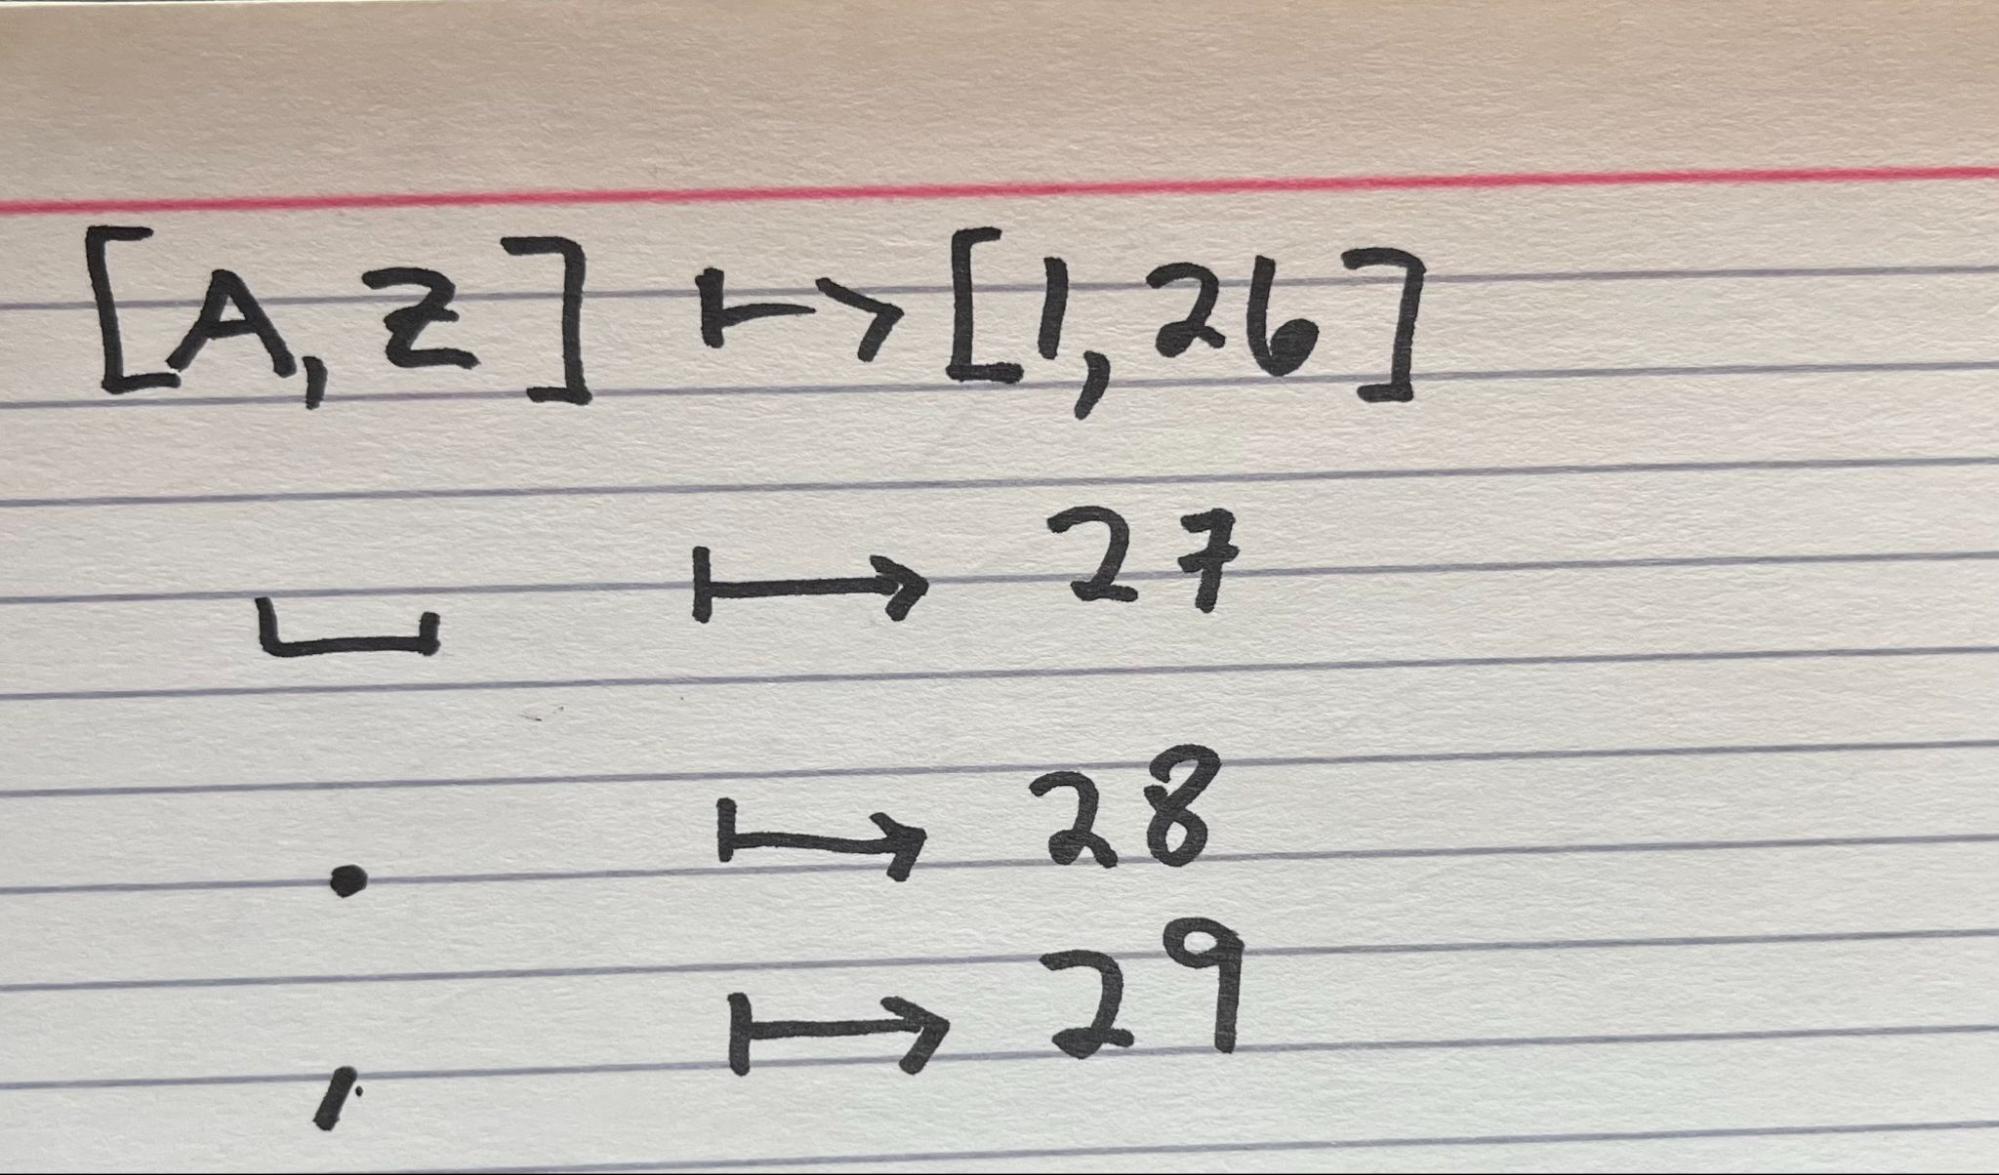 [A, Z] ↦ [1, 26]
⎵ ↦ 27
. ↦ 28
, ↦ 29